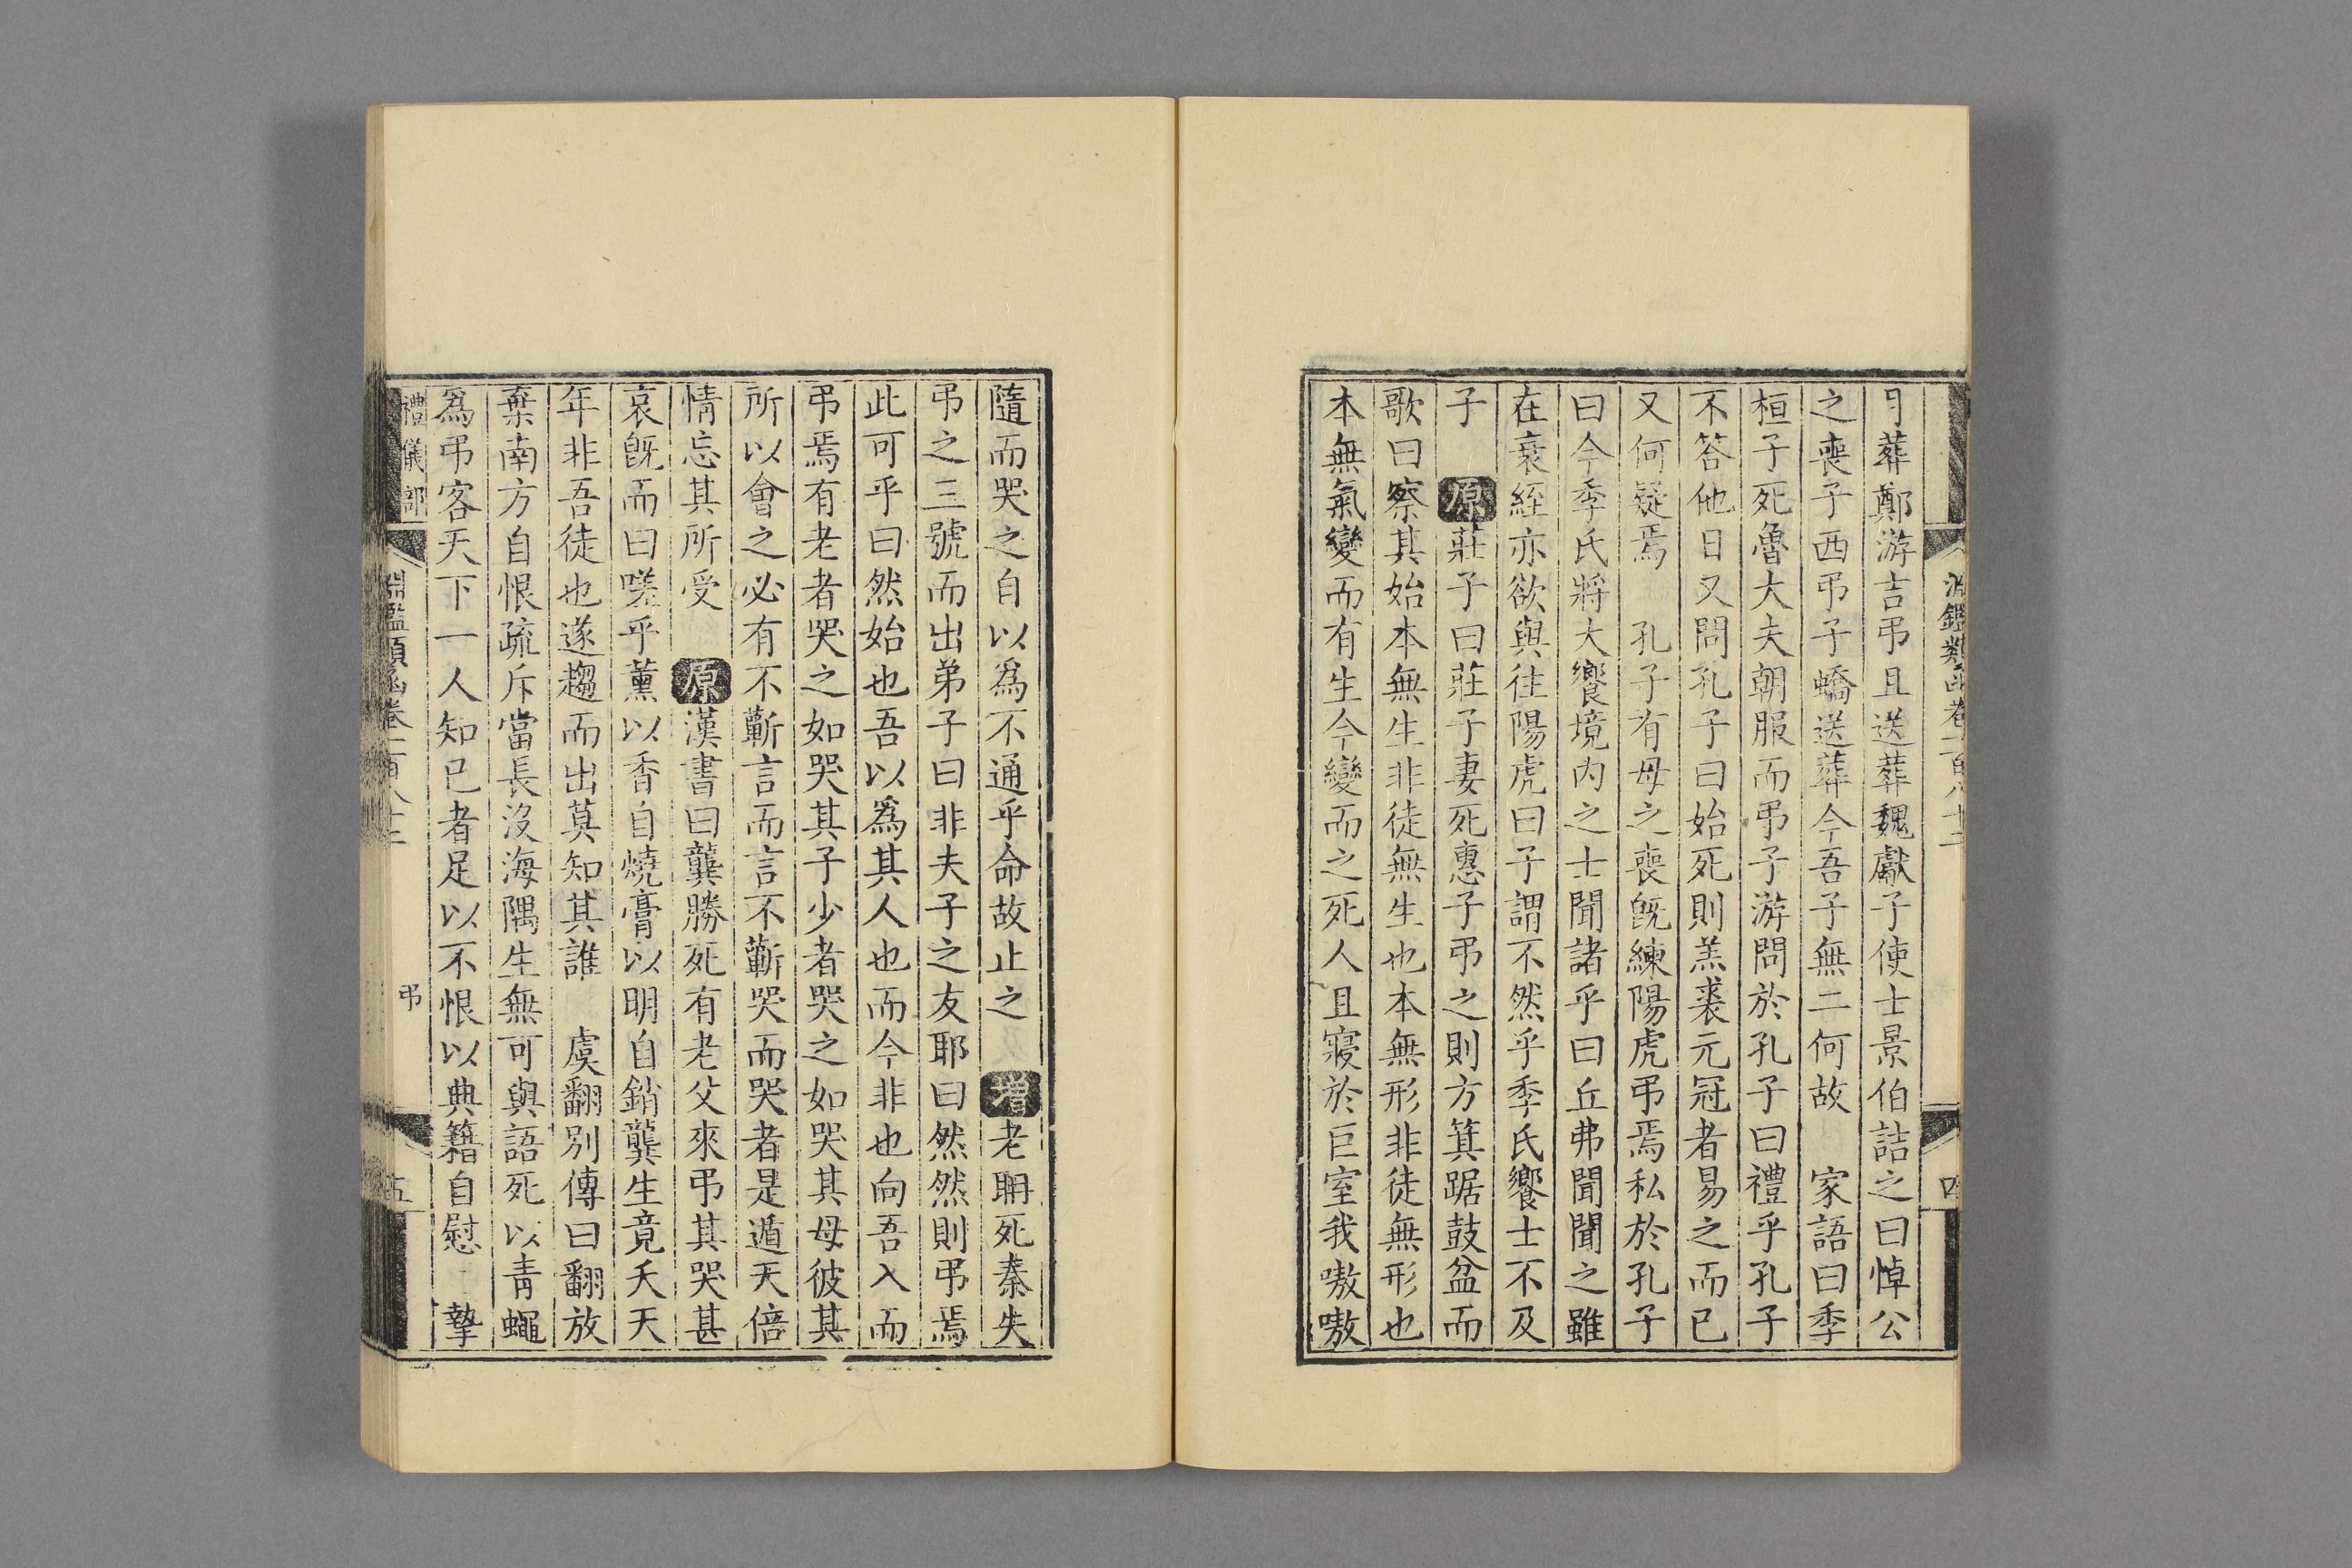 淵鑑類函卷一百八十二
四
月葬鄭游吉弔且送葬魏獻子使士景伯詰之曰悼公
之喪子西弔子蟜送葬今吾子無二何故　家語曰季
桓子死魯大夫朝服而弔子游問於孔子曰禮乎孔子
不答他日又問孔子曰始死則羔裘元冠者易之而已
又何疑焉　孔子有母之喪旣練陽虎弔焉私於孔子
曰今季氏將大饗境內之士聞諸乎曰丘弗聞聞之雖
在衰絰亦欲與往陽虎曰子謂不然乎季氏饗士不及
子　原莊子曰莊子妻死惠子弔之則方箕踞鼓盆而
歌曰察其始本無生非徒無生也本無形非徒無形也
本無氣變而有生今變而之死人且寢於巨室我嗷嗷
隨而哭之自以爲不通乎命故止之　增老耼死秦失
弔之三號而出弟子曰非夫子之友耶曰然然則弔焉
此可乎曰然始也吾以爲其人也而今非也向吾入而
弔焉有老者哭之如哭其子少者哭之如哭其母彼其
所以會之必有不蘄言而言不蘄哭而哭者是遁天倍
情忘其所受　原漢書曰龔勝死有老父來弔其哭甚
哀旣而曰嗟乎薰以香自燒膏以明自銷龔生竟夭天
年非吾徒也遂趨而出莫知其誰　虞翻別傳曰翻放
棄南方自恨疏斥當長沒海隅生無可與語死以靑蠅
爲弔客天下一人知己者足以不恨以典籍自慰　摯
禮儀部
淵鑑類函卷一百八十二
弔
五